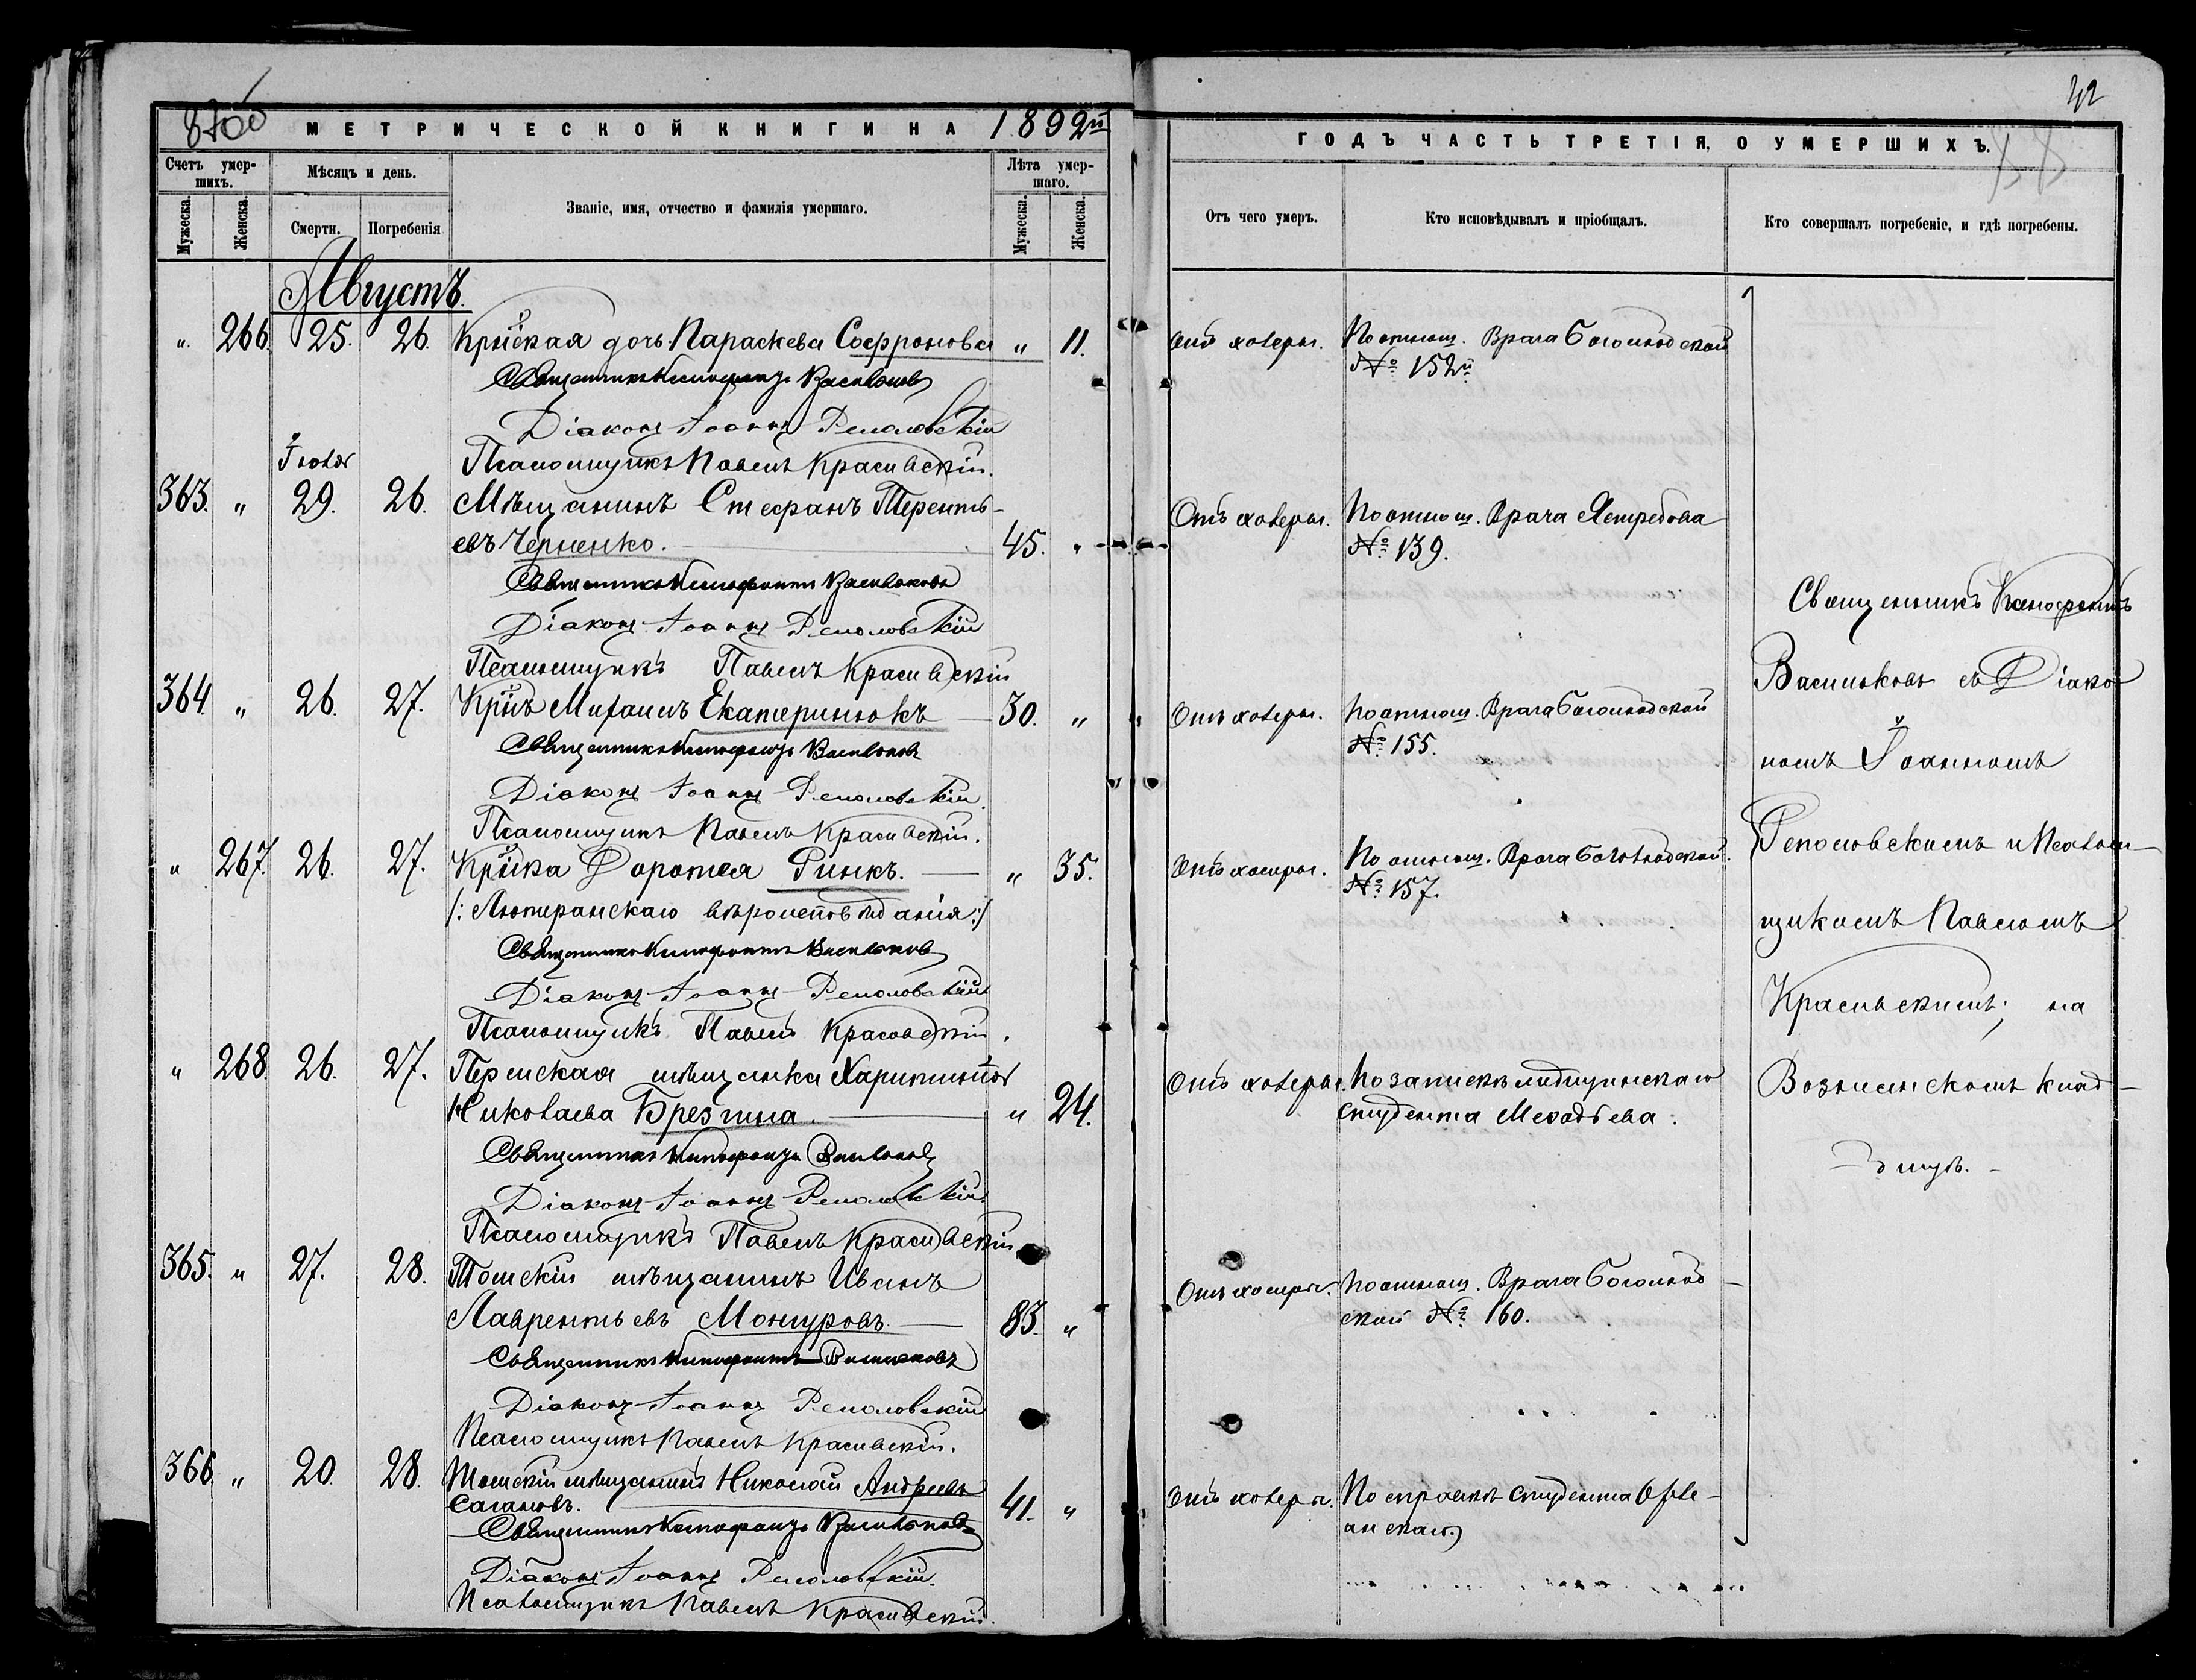 42
МЕТРИЧЕСКОЙ КНИГИ НА 1892й
ГОДЪ ЧАСТЬ ТРЕТІЯ, О УМЕРШИХЪ.
Счетъ умершихъ.
Мѣсяцъ и день.
Званіе, имя, отчество и фамилія умершаго.
Лѣта умершаго.
Мужеска.
Женска.
Смерти.
Погребенія
Мужеска.
Женска.
Отъ чего умеръ.
Кто исповѣдывалъ и пріобщалъ.
Кто совершалъ погребеніе, и гдѣ погребены.
Августъ.
" 266. 25. 26. Крҍская дочь Параскева Софронова " 11. Отъ холеры. По отнош. Врача Боголюбской
№ 152й
Священникъ Ксенофонтъ Васильковъ
Діаконъ Іоаннъ Реполовскій
Псаломщикъ Павелъ Красивскій.
Іюля
363. " 29. 26. Мѣщанинъ Стефанъ Теренть-
евъ Черненко. 45. " Отъ холеры. По отнош. Врача Ястребова
№ 139.
Священникъ Ксенофонтъ Васильковъ
Діаконъ Іоаннъ Реполовскій
Псаломщикъ Павелъ Красивскій
364. " 26. 27. Крнъ Михаилъ Екатеринюкъ 30. " Отъ холеры. По отнош. Врача Боголюбской
№ 155.
Священникъ Ксенофонтъ Васильковъ
Діаконъ Іоаннъ Реполовскій.
Псаломщикъ Павелъ Красивскій.
" 267. 26. 27. Крка Доротея Ринкъ. " 35. Отъ холеры. По отнош. Врача Боголюбской.
№ 157.
/: Лютеранскаго вѣроисповѣданія :/
Священникъ Ксенофонтъ Васильковъ
Діаконъ Іоаннъ Реполовскій
Псаломщикъ Павелъ Красовскій.
" 268. 26. 27. Пермская мѣщанка Харитинья
Николаева Брезгина. " 24. Отъ холеры. По запискѣ медицинскаго
студента Мефодіева.
Священникъ Ксенофонтъ Васильковъ
Діаконъ Іоаннъ Реполовскій.
Псаломщикъ Павелъ Красивскій
365. " 27. 28. Томскій мѣщанинъ Иванъ
Лаврентьевъ Мончуровъ. 83. " Отъ холеры. По отнош. Врача Боголюб-
ской № 160.
Священникъ Ксенофонтъ Васильковъ
Діаконъ Іоаннъ Реполовскій
Псаломщикъ Павелъ Красивскій.
366. " 20. 28. Томскій мѣщанинъ Николай Андреевъ
Сагановъ. 41. " Отъ холеры. По справкѣ студента
анскаго.
Священникъ Ксенофонтъ Васильковъ
Діаконъ Іоаннъ Реполовскій.
Псаломщикъ Павелъ Красивскій.
Священникъ Ксенофонтъ
Васильковъ съ Діако
номъ Іоанномъ
Реполовскимъ и Псалом-
щикомъ Павломъ
Красивскимъ; на
Вознесенскомъ клад-
бищѣ.